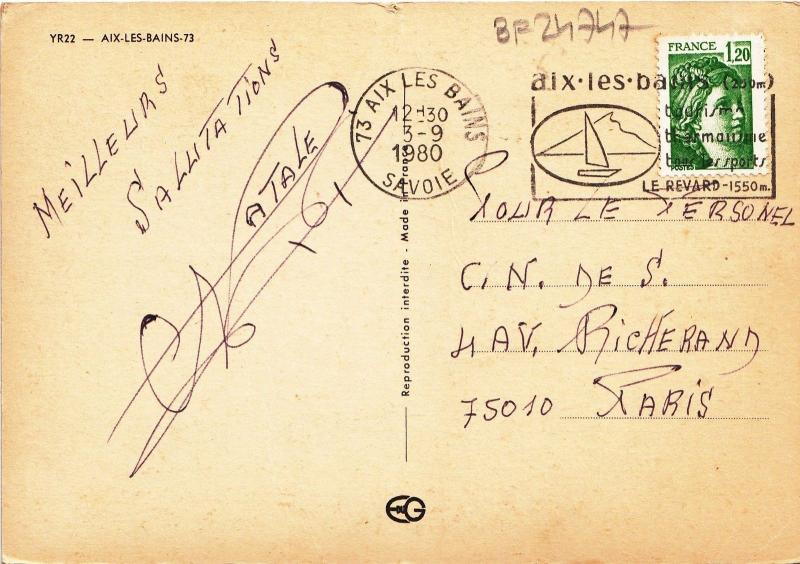 YR22 — AIX-LES-BAINS-73
BF24747
MEILLEURS
SALLUTATIONS
ATALE
73 AIX LES BAINS
12H30
3-9
1980
SAVOIE
FRANCE
1,20
POSTES
aix·les·bains (260m)
tourisme
thermalisme
tous les sports
LE REVARD-1550m.
POUR LE PERSONEL
C.N. DE S.
4 AV. RICHERAND
75010 PARIS
Reproduction interdite - Made in France